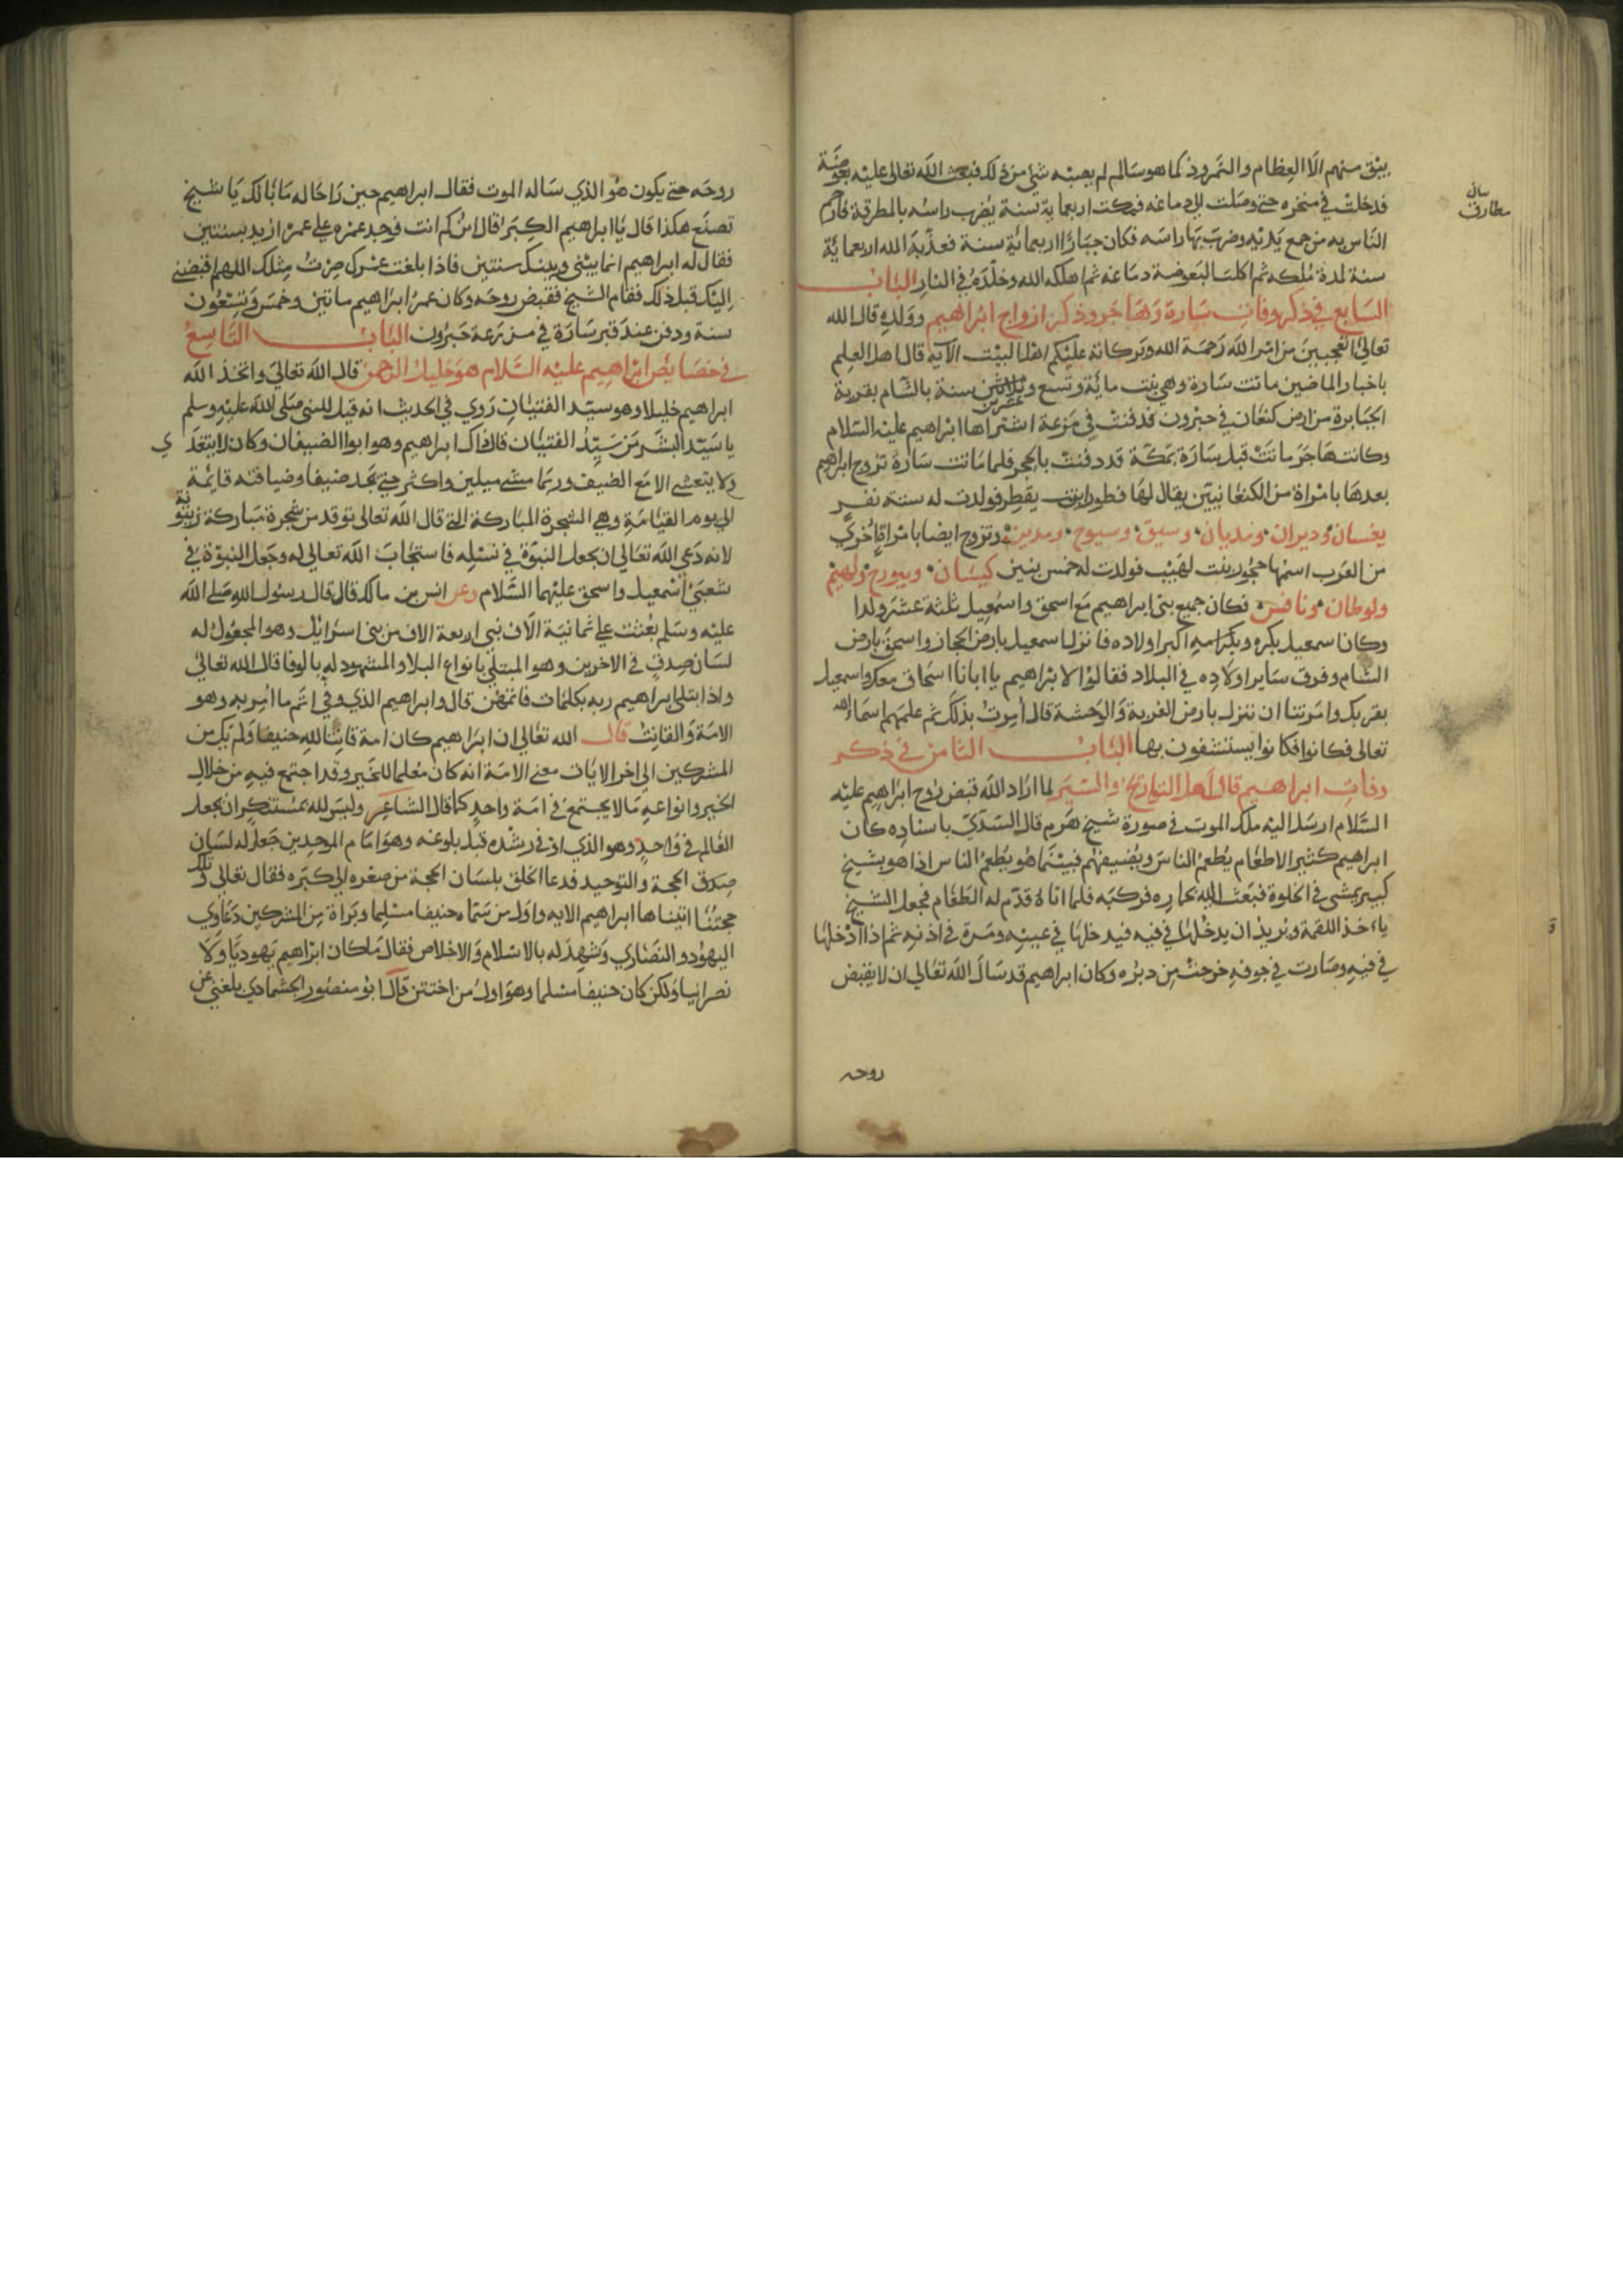 يبق منهم الا العظام والنمرود كما هو سالم لم يصبه شئ من ذلك فبعث الله تعالى عليه بعوضة
فدخلت في منخره حتى وصلت الى دماغه فمكث اربعماية سنة يضرب راسه بالمطرقة فارحم
الناس به من جمع يديه وضرب بها راسه فكان جبارا اربعمائة سنة فعذبه الله اربعمائة
سنة لمدة ملكه ثم اكلت البعوضة دماغه ثم اهلكه الله وخلده في النار الباب
السابع في ذكر وفات سارة وهاجر وذكر ازواج ابراهيم وولده قال الله
تعالى اتعجبين من امر الله رحمة الله وبركاته عليكم اهل البيت الآية قال اهل العلم
باخبار الماضين ماتت سارة وهي بنت مائة وتسع وعشرين سنة بالشام بقرية
الجبابرة من ارض كنعان في حبرون فدفنت في مزعة اشتراها ابراهيم عليه السلام
وكانت هاجر ماتت قبل سارة بمكة قد دفنت بالحجر فلما ماتت سارة تزوج ابراهيم
بعدها بامراة من الكنعانيين يقال لها فطورا بنت يقطر فولدت له ستة نفر
يغسان وديران ومديان وسيق وسيوح ومدين وتزوج ايضا بامراة اخري
من العرب اسمها حجور بنت لهيب فولدت له خمس بنين كيسان وبيورح ولهيم
ولوطان ونافس فكان جميع بنى ابراهيم مع اسحق واسمعيل ثلثة عشر ولدا
وكان اسمعيل بكره وبكر امه اكبر اولاده فانزل اسمعيل بارض الحجاز واسحق بارض
الشام وفرق ساير اولاده في البلاد فقالوا لابراهيم يا ابانا اسحاق معك واسمعيل
بقربك وامرتنا ان ننزل بارض الغربة والوحشة قال امرت بذلك ثم علمهم اسماء الله
تعالى فكانوا فكانوا يستشفون بها الباب الثامن في ذكر
وفات ابراهيم قال اهل التواريخ والسير لما اراد الله قبض روح ابراهيم عليه
السلام ارسل اليه ملك الموت في صورة شيخ هرم قال السدي باسناده كان
ابراهيم كثير الاطعام يطعم الناس ويضيفهم فبينما هو يطعم الناس اذا هو بشيخ
كبير يمشي في الخلوة فبعث اليه بحماره فركبه فلما اتاه قدم له الطعام فجعل الشيخ
ياخذ اللقمة ويريد ان يدخلها في فيه فيدخلها في عينه ومرة في اذنه ثم اذا ادخلها
في فيه وصارت في جوفه خرجت من دبره وكان ابراهيم قد سال الله تعالى ان لا يقبض
روحه
روحه حتى يكون هو الذي ساله الموت فقال ابراهيم حين را حاله ما بالك يا شيخ
تصنع هكذا قال يا ابراهيم الكبر قال ابن كم انت فوجد عمره على عمر ازيد بسنتين
فقال له ابراهيم انما بينى وبينك سنتين فاذا بلغت عمرك صرت مثلك اللهم اقبضنى
اليك قبل ذلك فقام الشيخ فقبض روحه وكان عمر ابراهيم ماتين وخمس وتسعون
سنة ودفن عند قبر سارة في مزرعة حبرون الباب التاسع
في خصايص ابراهيم عليه السلام هو خليل الرحمن قال الله تعالى واتخذ الله
ابراهيم خليلا وهو سيد الفتيان روي في الحديث انه قيل للنبى صلى الله عليه وسلم
يا سيد البشر من سيد الفتيان قال ذاك ابراهيم وهو ابوا الضيفان وكان لا يتغدي
ولا يتعشى الا مع الضيف وربما مشى ميلين واكثر حتى يجد ضيفا وضيافته قايمة
الى يوم القيامة وهي الشجرة المباركة التى قال الله تعالى توقد من شجرة مباركة زيتونة
لانه دعى الله تعالى ان يجعل النبوة في نسله فاستجاب الله تعالى له وجعل النبوة في
شعبتى اسمعيل واسحق عليهما السلام وعن انس بن مالك قال قال رسول الله صلى الله
عليه وسلم بعثت على ثمانية الاف نبى اربعة الاف من بنى اسرايل وهو المجعول له
لسان صدق في الاخرين وهو المبتلى بانواع البلا والمشهود له بالوفا قال الله تعالى
واذ ابتلى ابراهيم ربه بكلمات فاتمهن قال وابراهيم الذي وفى اتم ما امر به وهو
الامة والقانت قال الله تعالى ان ابراهيم كان امة قانتا لله حنيفا ولم يك من
المشركين الى اخر الايات معنى الامة انه كان معلما للخير وقد اجتمع فيه من خلال
الخير وانواعه ما لا يجتمع في امة واحد كما قال الشاعر وليس لله بمستنكر ان يجعل
العالم في واحد وهو الذي اوتى رشده قبل بلوغه وهو امام الموحدين جعل له لسان
صدق الحجة والتوحيد فدعا الخلق بلسان الحجة من صغره الى كبره فقال تعالى وتلك
حجتنا اتيناها ابراهيم الايه واول من سماه حنيفا مسلما وبراة من المشركين دعاوي
اليهود والنصاري وشهد له بالاسلام والاخلاص فقال ما كان ابراهيم يهوديا ولا
نصرانيا ولكن كان حنيفا مسلما وهو اول من اختتن قال ابو منصور الجشمادي بلغني عن